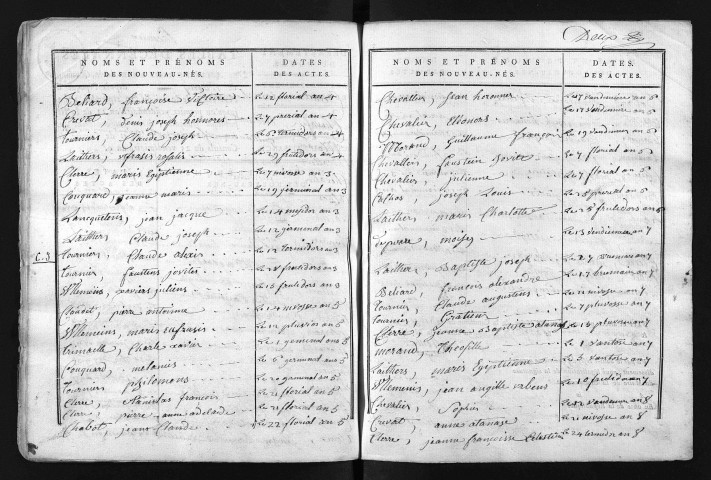 NOMS ET PRÉNOMS
DES NOUVEAU-NÉS.
DATES
DES ACTES.
Beliard, françoise Victoire le 12 florial an 4
Crevat, denis joseph honnores 27 prerial an 4
tourniers, Claude joseph le 6 termidors an 4
Laithiers, ufrasis rosalis le 29 frutidors an 4
Clerc, maris Egiptienne le 7 nivose an 3
Couquard, jeanne maris le 19 germinal an 3
Lancquetins, jean jacque
Laithier, Claude joseph le 14 mesidor an 3
tournier, Claude alexis le 12 germinal an 3
C. 3
tournier, faustens jovites le 12 termidors an 3
Vllemins, xaviers juliens le 18 frutidors an 3
Chabot, pierre antoinne le 15 frutidors an 3
Vllemeins, maris eufrasis le 14 nivose an 5
trimaille, Charle xavier le 12 pluvios an 5
Couquard, melanies le 1 germenal an 5
tourniers, philomens le 6 germenal an 5
Clerc, stanislas francois le 20 germinal an 5
Clerc, pierre anne adelaide le 21 florial an 5
Chabot, jean Claude le 22 florial an 5
Deux
NOMS ET PRÉNOMS
DES NOUVEAU-NÉS.
DATES.
DES ACTES.
Chevallier, jean honnorer le 17 vandemiere an 6
Chevalier, Elionore le 17 vandemiere an 6
Morand, Guillaume françois le 19 vandemiere an 6
Chevallier, faustein jovite le 7 florial an 6
Chevalier, julienne le 7 florial an 6
joseph Louis le 8 prerial an 6
Laithier, maris Charlotte le 8 frutidors an 6
moises le 13 vendemiaire an 7
Laithier, Baptiste joseph
Beliard, francois alexandre le 17 brumaire an 7
tournier, Claude augustins le 11 nivose an 7
tournier, Gratieux le 7 pluvose an 7
Clerc, jeanne Baptiste atanase le 18 pluvose an 7
morand, Theofille le 1 vantose an 7
Laithiers, maris Egiptienne le 5 vantose an 7
Vllemenis, jean angille urbens le 10 frutidor an 7
Chevalier, Sophie le 12 vandemier an 8
Crevat, anne atanase le 11 nivose an 8
Clerc, jeanne francoisse Celestine le 24 termidor an 8